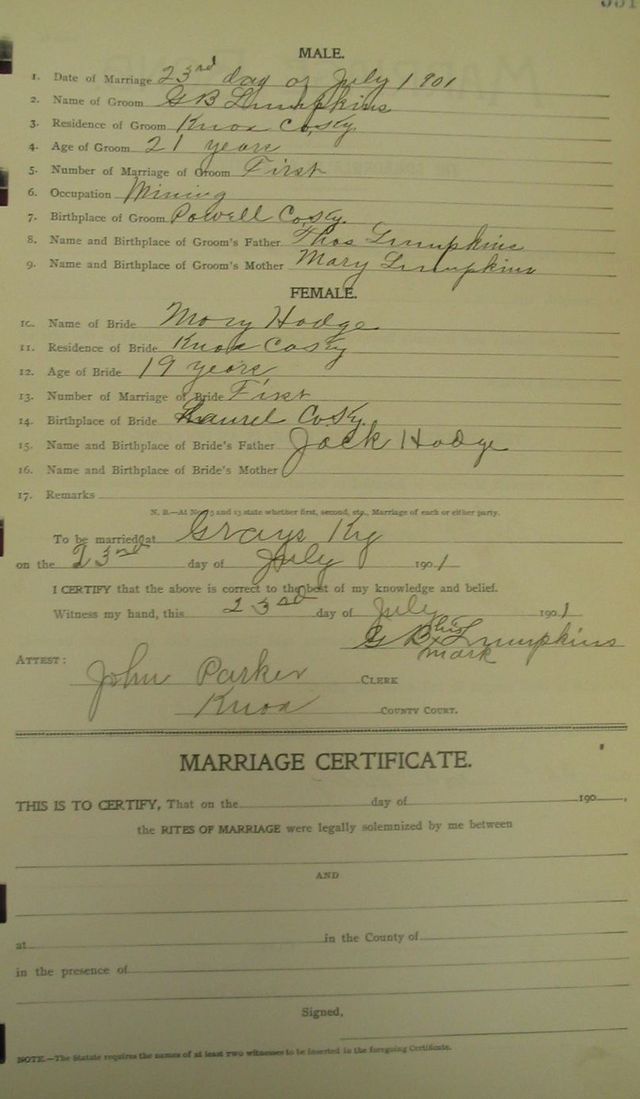 MALE.
1. Date of Marriage 23rd day of July 1901
2. Name of Groom G B Lumpkins
3. Residence of Groom Knox Co, Ky
4. Age of Groom 21 years
5. Number of Marriage of Groom First
6. Occupation Mining
7. Birthplace of Groom Powell Co, Ky.
8. Name and Birthplace of Groom's Father Thos Lumpkins
9. Name and Birthplace of Groom's Mother Mary Lumpkins
FEMALE.
10. Name of Bride Mory Hodge
11. Residence of Bride Knox Co Ky
12. Age of Bride 19 years
13. Number of Marriage of Bride First
14. Birthplace of Bride Laurel Co Ky.
15. Name and Birthplace of Bride's Father Jack Hodge
16. Name and Birthplace of Bride's Mother
17. Remarks
N. B.—At Nos. 5 and 13 state whether first, second, etc., Marriage of each or either party.
To be married at Grays Ky
on the 23rd day of July 1901
I CERTIFY that the above is correct to the best of my knowledge and belief.
Witness my hand, this 23rd day of July 1901
G B his x mark Lumpkins
ATTEST:
John Parker CLERK
Knox COUNTY COURT.
MARRIAGE CERTIFICATE.
THIS IS TO CERTIFY, That on the day of 190 ,
the RITES OF MARRIAGE were legally solemnized by me between
AND
at in the County of
in the presence of
Signed,
NOTE.—The Statute requires the names of at least two witnesses to be inserted in the foregoing Certificate.